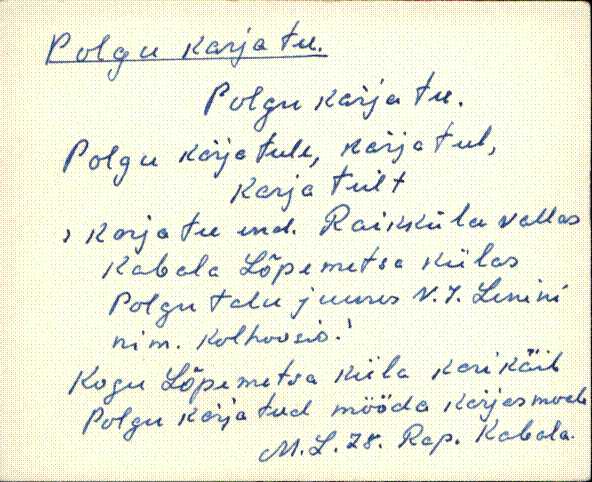 Polgu karja tee.
Polgu karja tee.
Polgu karja teele, karja teel,
karja teelt
karja tee end. Raikküla vallas
Kabala Lõpemetsa külas
Polgu talu juures V. I. Lenini
nim. kolhoosis.'
Kogu Lõpemetsa küla kari käib
Polgu karja teed mööda karjasmaale
M. L. 78. Rap. Kabala.